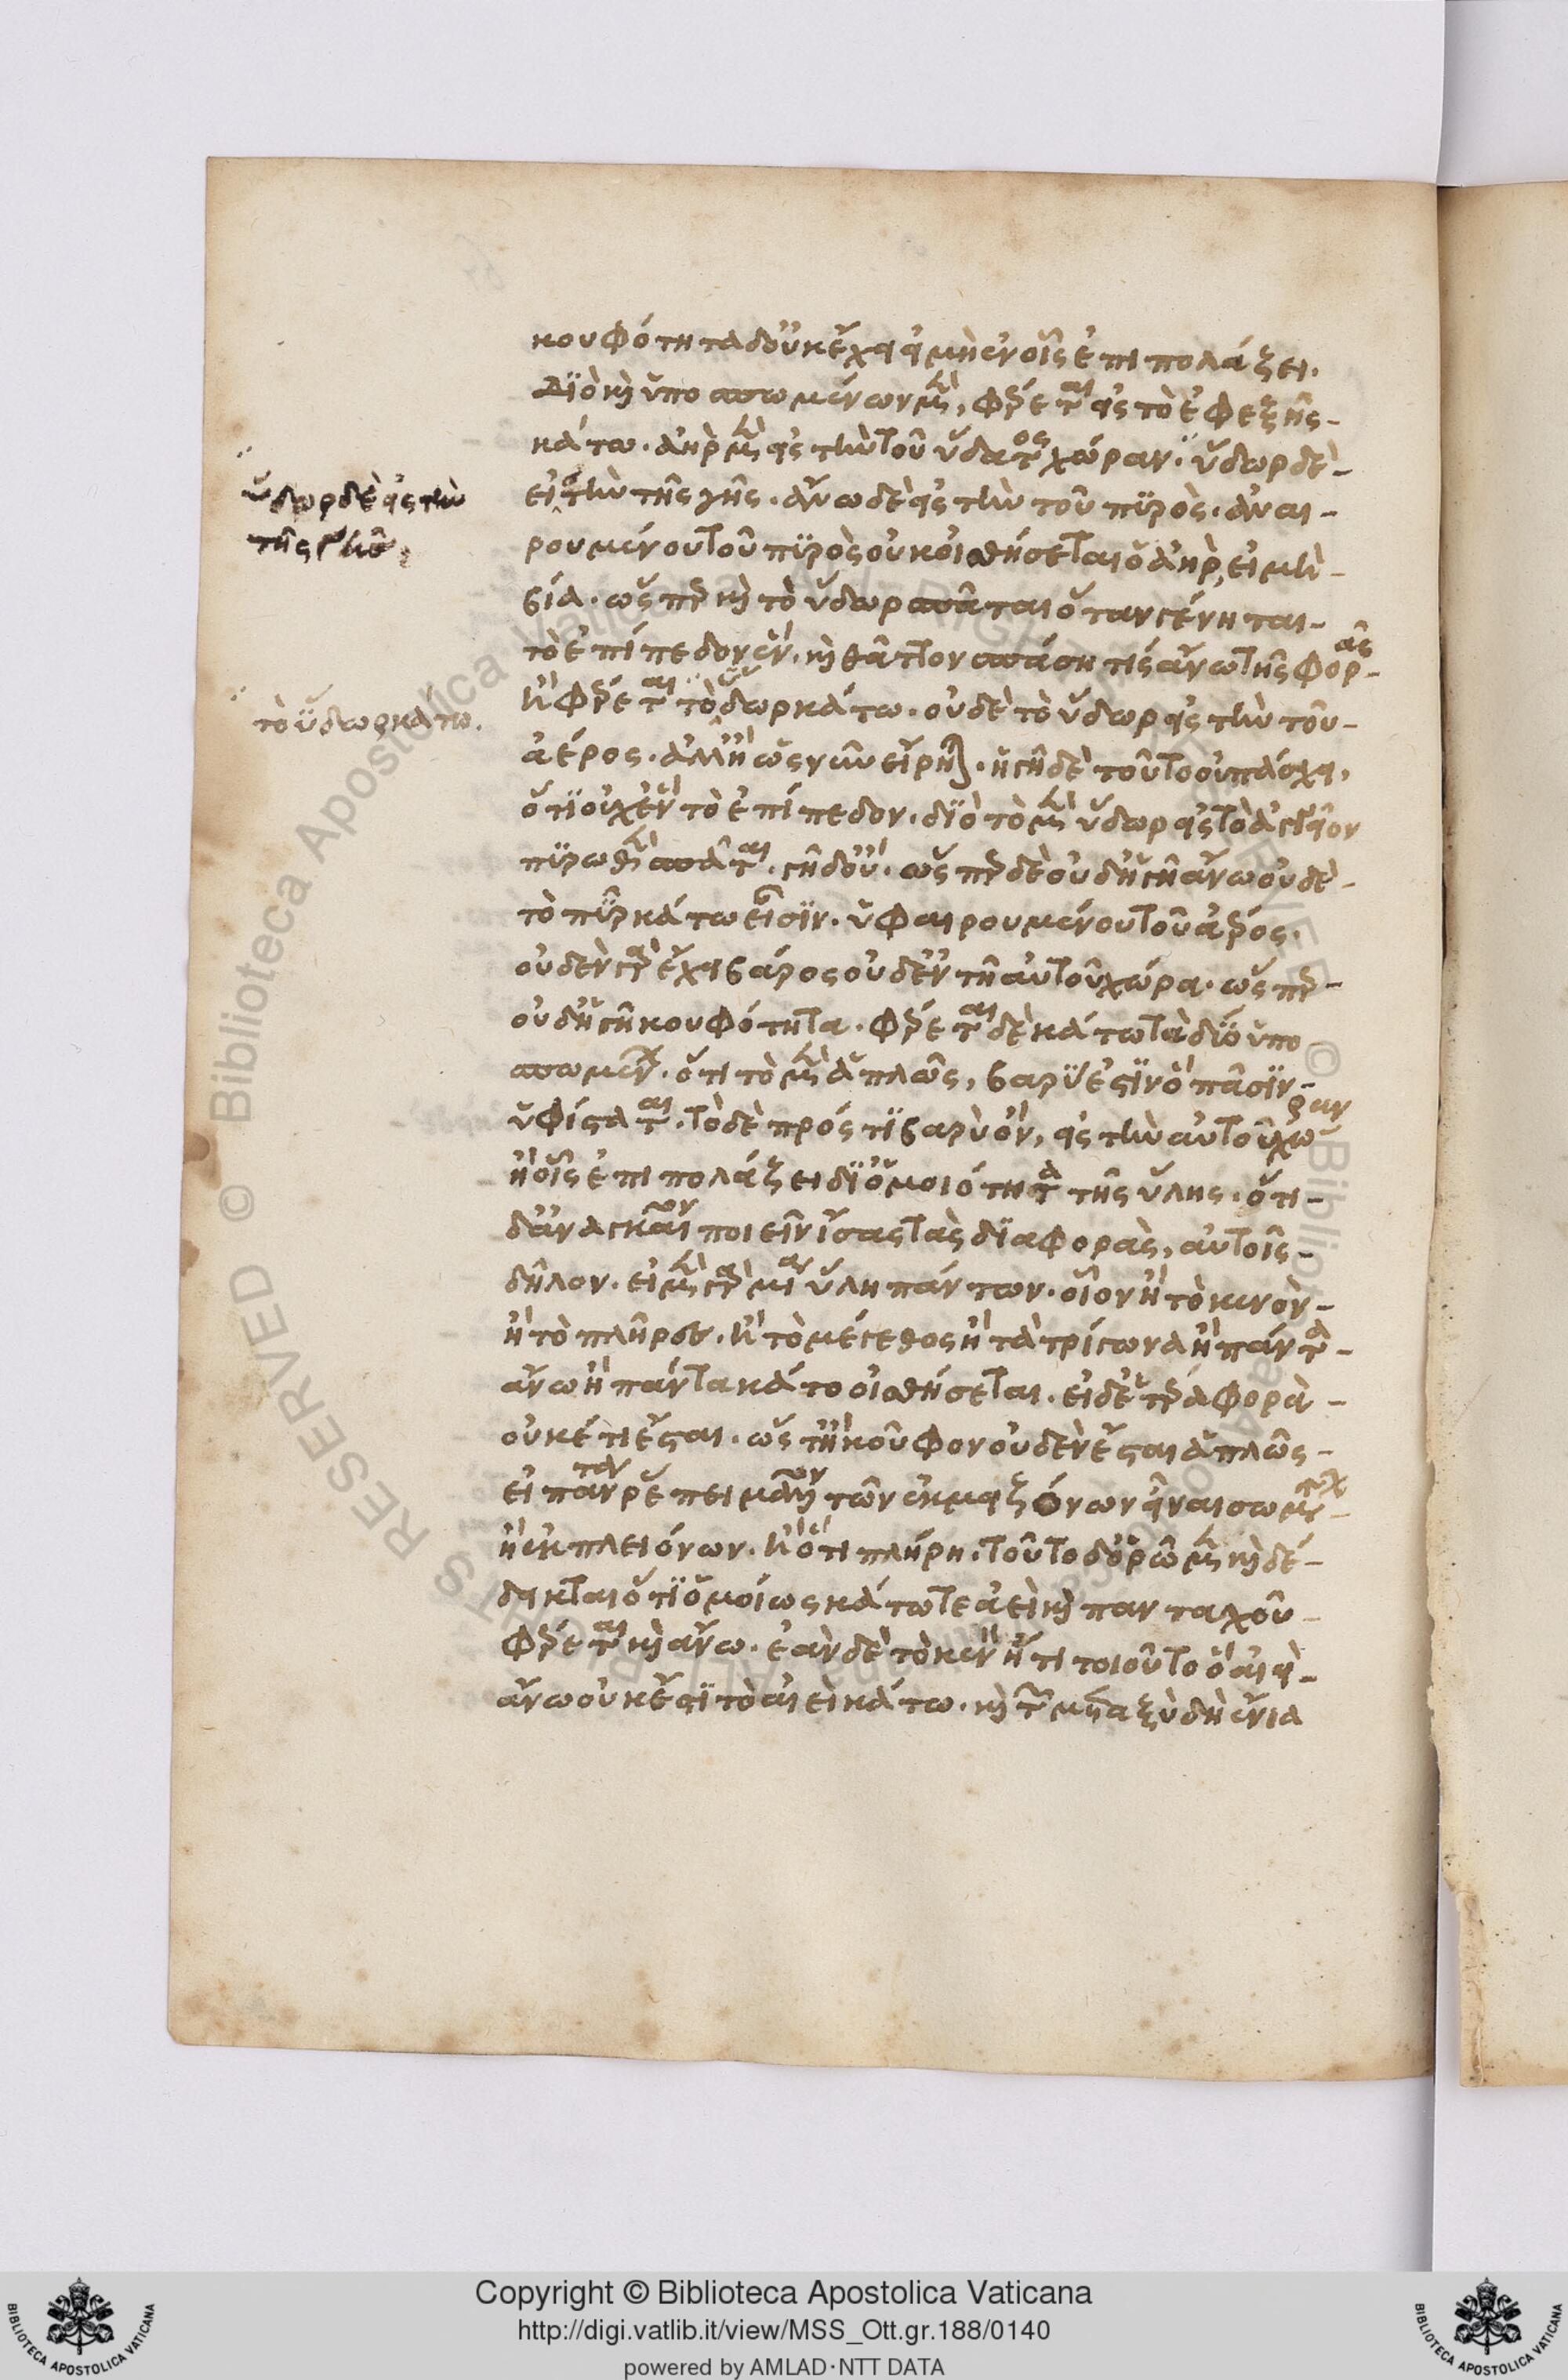 κουφότητα δ' οὐκ ἔχει εἰ μὴ ἐν οἷς ἐπιπολάζει.
Διὸ καὶ ὑποσπωμένων μὲν, φέρεται εἰς τὸ ἐφεξῆς
κάτω. ἀὴρ μὲν εἰς τὴν τοῦ ὕδατος χώραν. ὕδωρ δὲ
εἰς τὴν τῆς γῆς. ἄνω δὲ εἰς τὴν τοῦ πυρὸς. ἀναι-
ρουμένου τοῦ πυρὸς οὐκ οἰσθήσεται ὁ ἀὴρ, εἰ μὴ
βία. ὥσπερ καὶ τὸ ὕδωρ σπᾶται ὅταν γένηται
τὸ ἐπίπεδον ἕν. καὶ θᾶττον σπάση τίς ἄνω τῆς φορᾶς
ἣ φέρεται τὸ ὕδωρ κάτω. οὐδὲ τὸ ὕδωρ εἰς τὴν τοῦ
ἀέρος. ἀλλ' ἢ ὡς νῦν εἴρηται. ἡ γῆ δὲ τοῦτο οὐ πάσχει,
ὅτι οὐχ ἓν τὸ ἐπίπεδον. διὸ τὸ μὲν ὕδωρ εἰς τὸ ἀγγεῖον
πυρωθὲν σπᾶται. γῆ δ' οὔ. ὥσπερ δὲ οὐδ' ἡ γῆ ἄνω οὐδὲ
τὸ πῦρ κάτω εἶσιν. ὑφαιρουμένου τοῦ ἀέρος.
οὐδὲν γὰρ ἔχει βάρος οὐδ' ἐν τῆ αὑτοῦ χώρα. ὥσπερ
οὐδ' ἡ γῆ κουφότητα. φέρεται δὲ κάτω τὰ δύο ὑπο
σπωμένου. ὅτι τὸ μὲν ἁπλῶς, βαρύ ἐστιν ὃ πᾶσιν
ὑφίσταται. τὸ δὲ πρός τι βαρὺ ὂν, εἰς τὴν αὑτοῦ χώραν
ἢ οἷς ἐπιπολάζει δι' ὁμοιότητα τῆς ὕλης. ὅτι
δ' ἀναγκαῖον ποιεῖν ἴσας τὰς διαφορὰς, αὐτοῖς
δῆλον. εἰ μὲν γὰρ μία ὕλη πάντων. οἷον ἢ τὸ κενὸν
ἢ τὸ πλῆρες. ἢ τὸ μέγεθος ἢ τὰ τρίγωνα ἢ πάντα
ἄνω ἢ πάντα κάτο οἰσθήσεται. εἰ δ' ἑτέρα φορὰ
οὐκέτι ἔσται. ὥστ' ἢ κοῦφον οὐδὲν ἔσται ἁπλῶς
εἰ πάντα ῥέπει μᾶλλον τῶν ἐκ μειζόνων εἶναι σωμάτων
ἢ ἐκ πλειόνων. ἢ ὅτι πλήρη. τοῦτο δ' ὁρῶμεν καὶ δέ-
δεικται ὅτι ὁμοίως κάτω τε ἀεὶ καὶ πανταχοῦ
φέρεται καὶ ἄνω. ἐὰν δὲ τὸ κενὸν ἤ τι τοιοῦτο ὃ αἰεὶ
ἄνω οὐκ ἔσται τὸ αἰεὶ κάτω. καὶ τῶν μεταξὺ δὴ ἔνια
ὕδωρ δὲ εἰς τὴν
τῆς γῆς,
τὸ ὕδωρ κάτω.
Copyright © Biblioteca Apostolica Vaticana
http://digi.vatlib.it/view/MSS_Ott.gr.188/0140
powered by AMLAD·NTT DATA